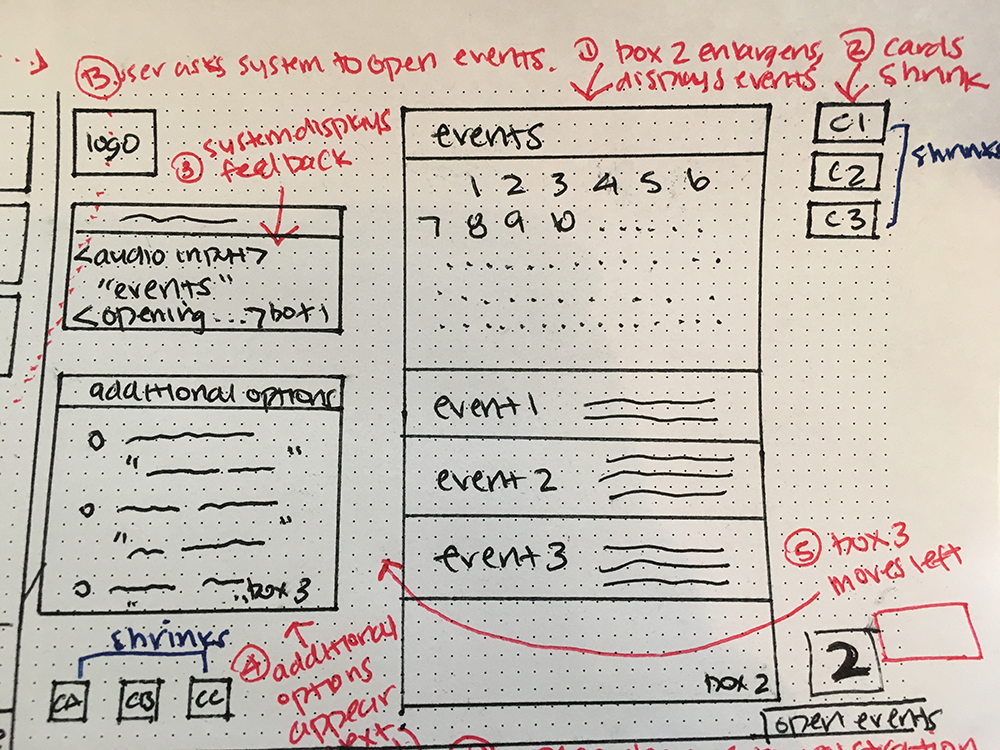 B user asks system to open events.
① box 2 enlargens,
displays events
② cards
shrink
logo
③ system displays
feedback
<audio input>
"events"
<opening...> box 1
additional options
box 3
shrinks
CA CB CC
④ additional
options
appear
events
1 2 3 4 5 6
7 8 9 10
event 1
event 2
event 3
box 2
C1
C2
C3
shrinks
⑤ box 3
moves left
2
open events